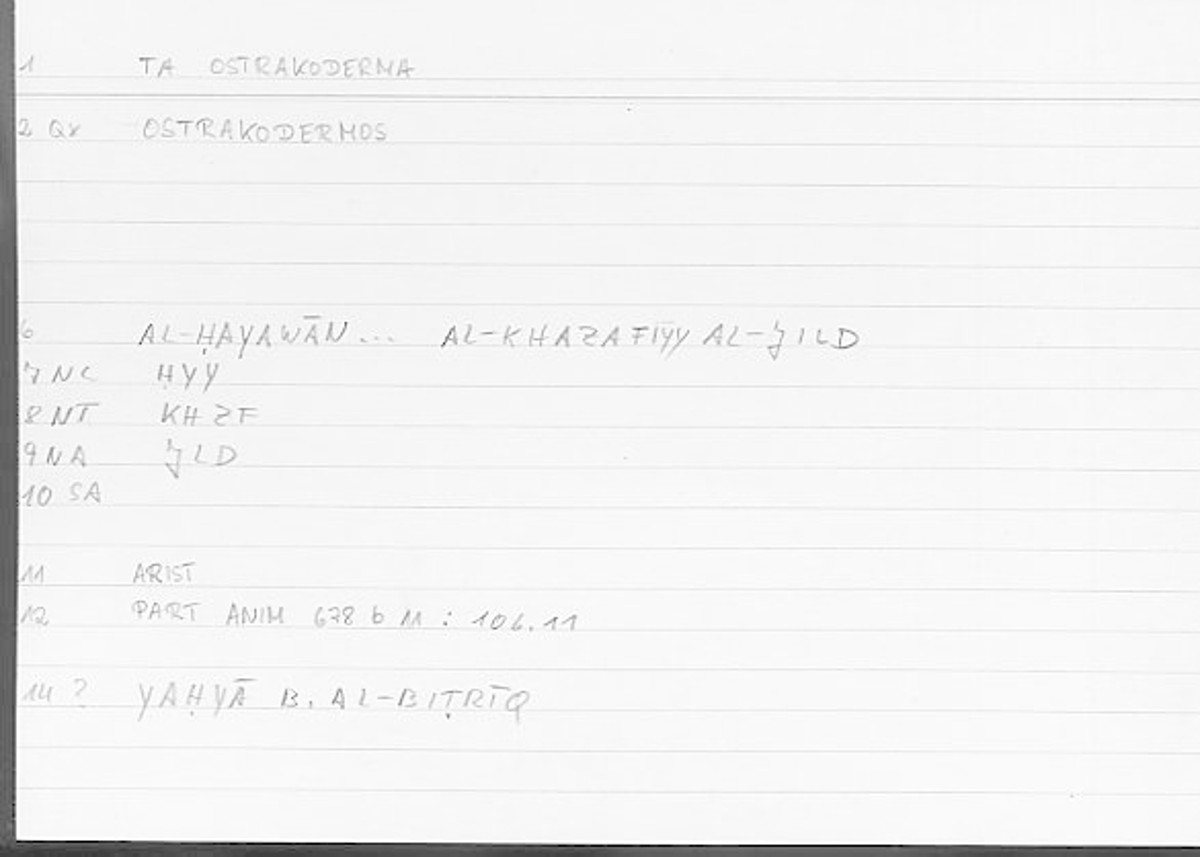 1 TA OSTRAKODERMA
2 Qr OSTRAKODERMOS
6 AL-ḤAYAWĀN... AL-KHAZAFIYY AL-JILD
7 NC ḤYY
8 NT KHZF
9 NA JLD
10 SA
11 ARIST
12 PART ANIM 678 b 11 : 106.11
14 ? YAḤYĀ B. AL-BIṬRĪQ